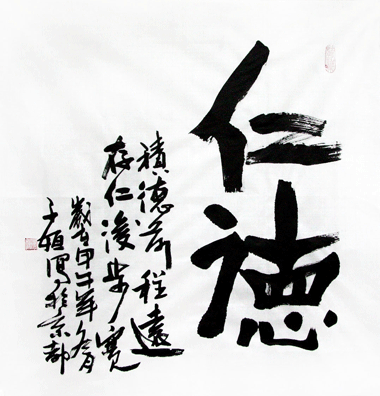 仁德
積德前程遠
存仁後步寬
歲在甲午年冬月
子 寫於京都